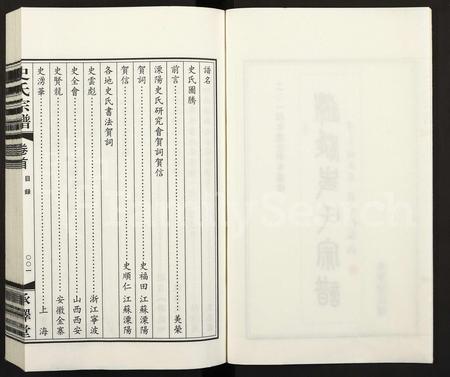 譜名
史氏圖騰
前言……美榮
溧陽史氏研究會賀詞賀信
賀詞……史福田 江蘇溧陽
賀信……史順仁 江蘇溧陽
各地史氏書法賀詞
史雲彪……浙江寧波
史全會……山西西安
史賢龍……安徽金寨
史湧華……上海
史氏宗譜
卷首
目錄
〇〇一
FamilySearch